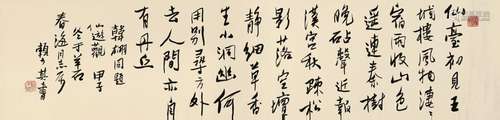 仙臺初見五
城樓風物淒〻
宿雨收山色
遥連秦樹
晚砧聲近報
漢宮秋疎松
影落空壇
静細草香
生小洞幽何
用别尋方外
去人間亦自
有丹丘
韓翃同題
仙遊觀 甲子
冬于羊石
春海同志
賴少其書